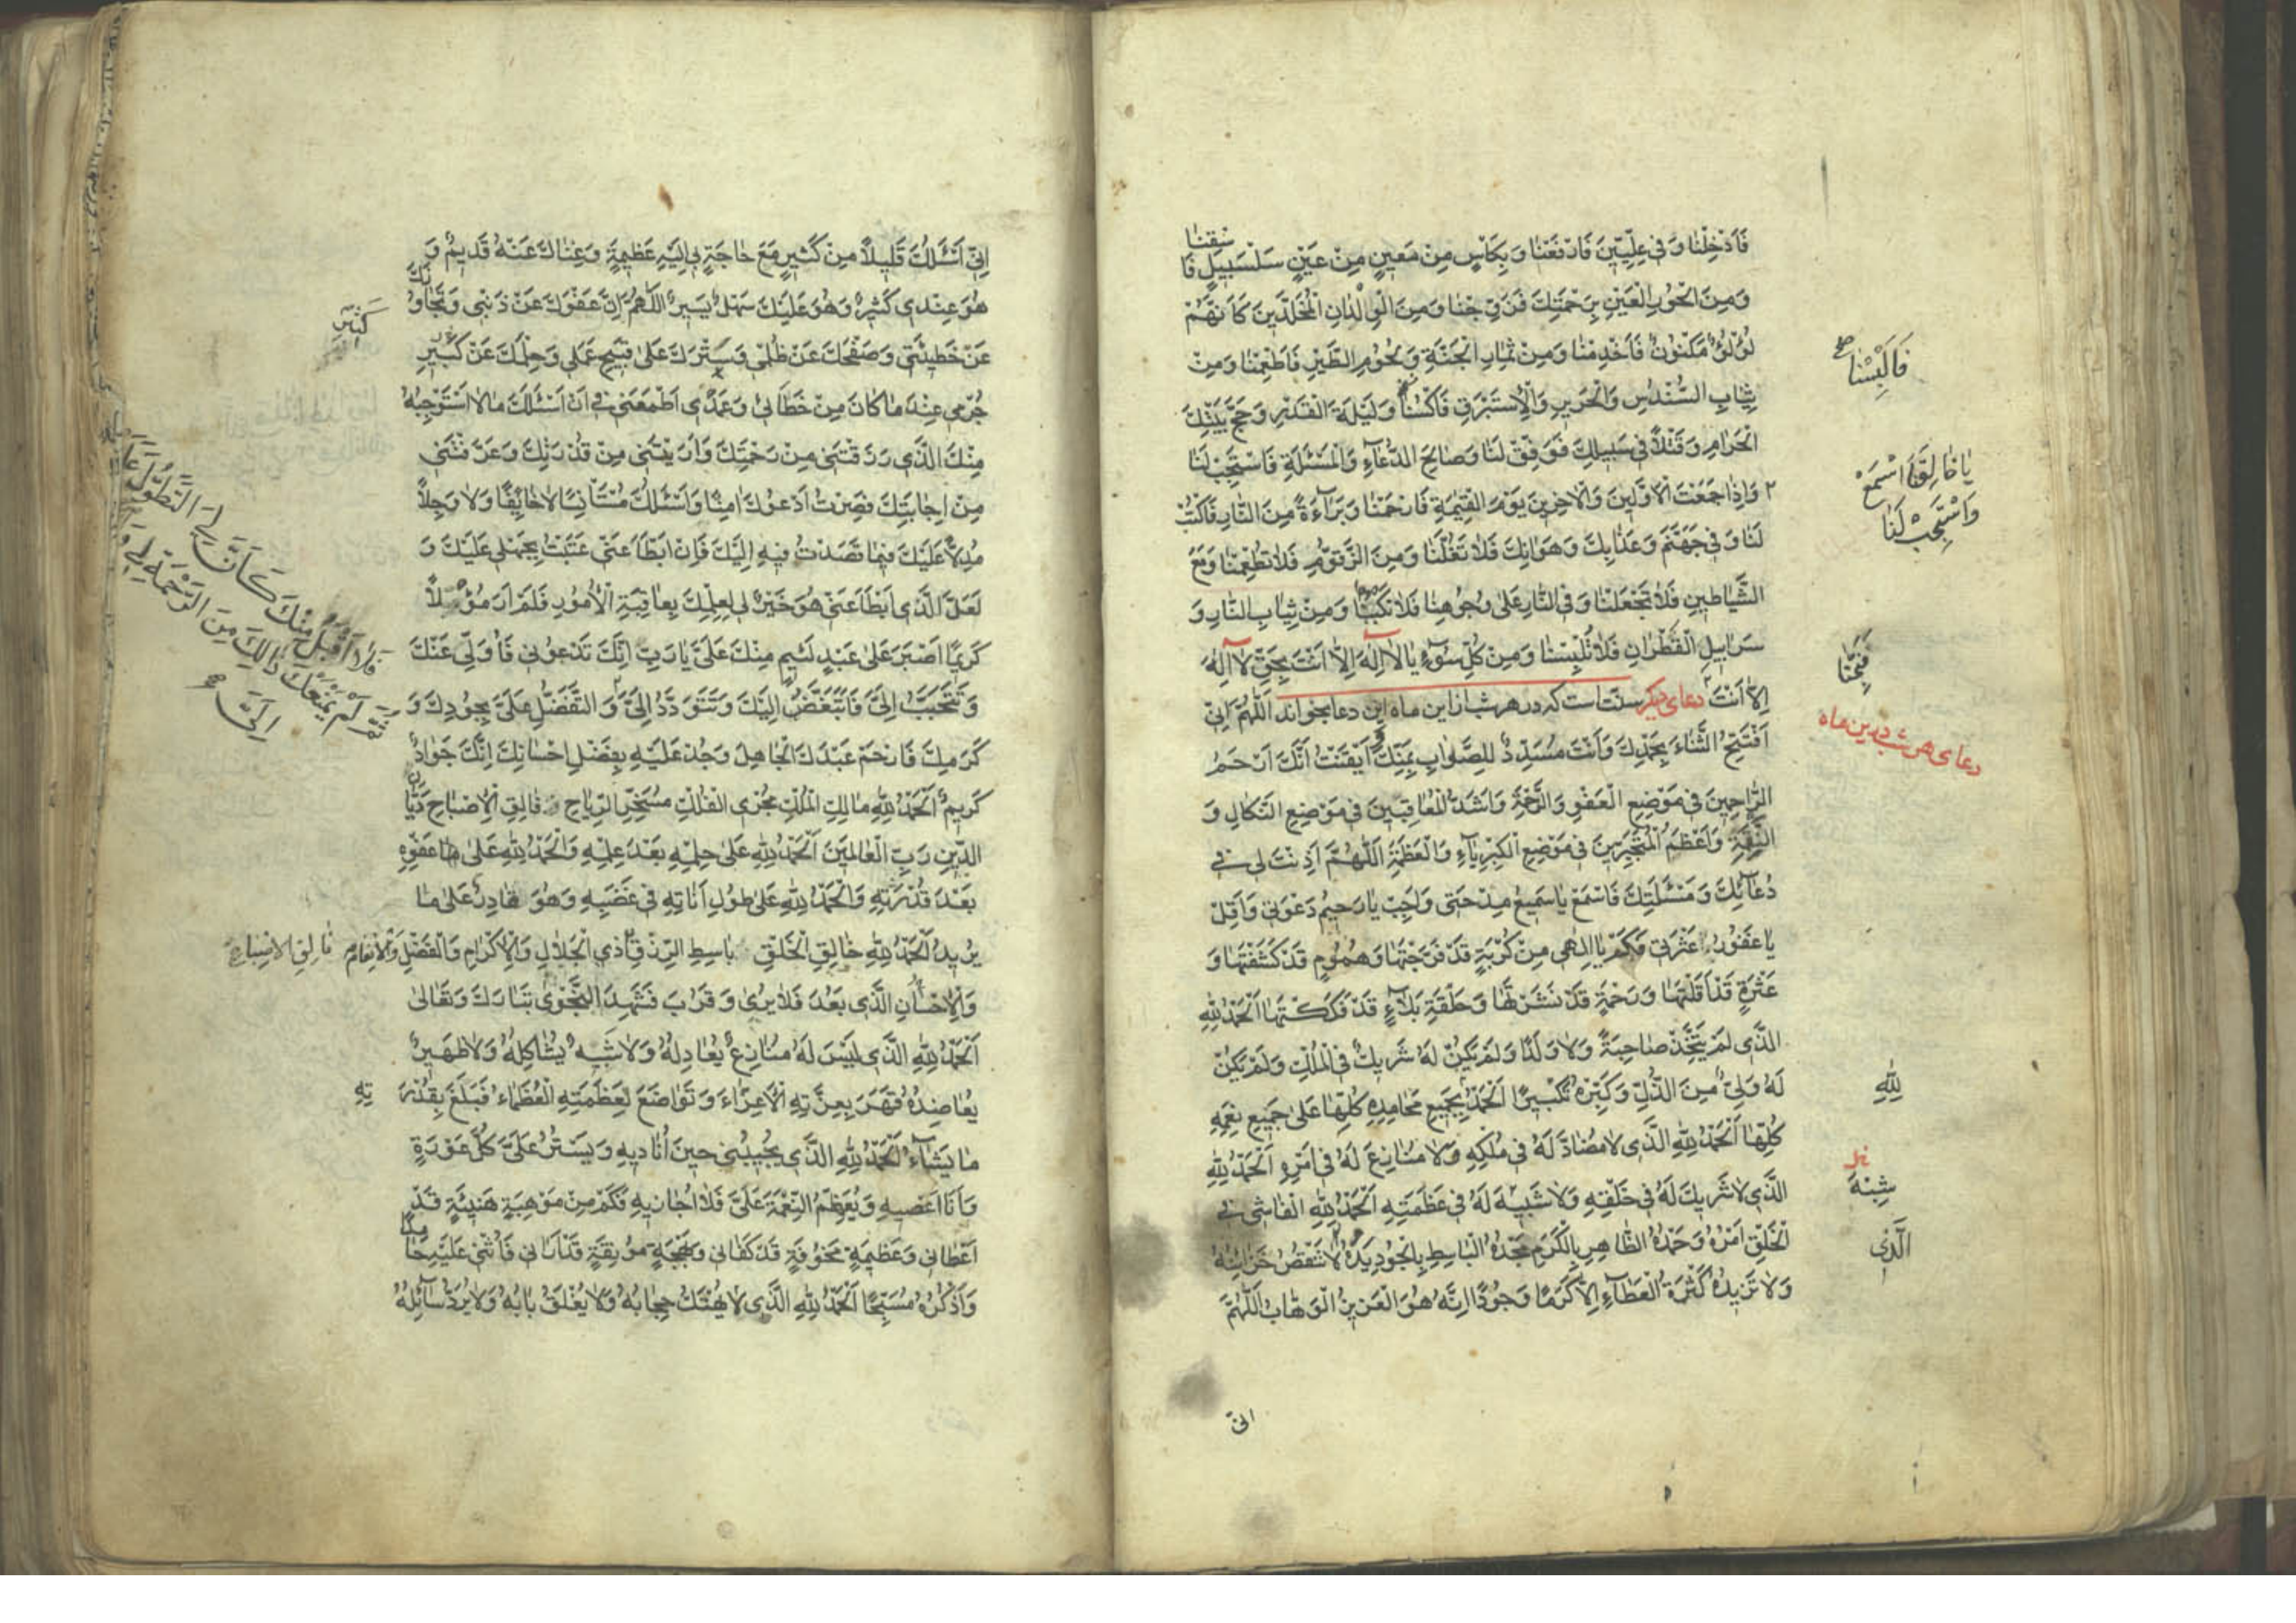 فَاَدْخِلْنٰا وَفی عِلِّيّينَ فَارْفَعْنٰا وَ بِكَأْسٍ مِنْ مَعينٍ مِنْ عَيْنٍ سَلْسَبيلٍ فَا
سْقِنٰا
وَمِنَ الْحُورِ الْعينِ بِرَحْمَتِكَ فَزَوِّجْنٰا وَمِنَ الْوِلْدٰانِ الْمُخَلَّدينَ كَاَنَّهُمْ
لُؤْلُؤٌ مَكْنُونٌ فَاَخْدِمْنٰا وَمِنْ ثِمٰارِ الْجَنَّةِ وَ لُحُومِ الطَّيْرِ فَاَطْعِمْنٰا وَمِنْ
ثِيٰابِ السُّنْدُسِ وَالْحَريرِ وَالْاِسْتَبْرَقِ فَاكْسُنٰا وَ لَيْلَةَ الْقَدْرِ وَ حَجَّ بَيْتِكَ
فَاَلْبِسْنٰا
الْحَرٰامِ وَ قَتْلاً فی سَبيلِكَ فَوَفِّقْ لَنٰا وَ صٰالِحَ الدُّعٰاۤءِ وَالْمَسْئَلَةِ فَاسْتَجِبْ لَنٰا
يٰا خٰالِقَنٰا اسْمَعْ
وَاسْتَجِبْ لَنٰا
وَ اِذٰا جَمَعْتَ الْاَوَّلينَ وَالْاٰخِرينَ يَوْمَ الْقِيٰمَةِ فَارْحَمْنٰا وَ بَرٰاۤءَةً مِنَ النّٰارِ فَاكْتُبْ
لَنٰا وَ فی جَهَنَّمَ وَ عَذٰابِكَ وَ هَوٰانِكَ فَلاٰ تَغُلَّنٰا وَمِنَ الزَّقُّومِ فَلاٰ تُطْعِمْنٰا وَ مَعَ
الشَّيٰاطينِ فَلاٰ تَجْعَلْنٰا وَ فی النّٰارِ عَلیٰ وُجُوهِنٰا فَلاٰ تَكُبَّنٰا وَمِنْ ثِيٰابِ النّٰارِ وَ
سَرٰابيلِ الْقَطْرٰانِ فَلاٰ تُلْبِسْنٰا وَمِنْ كُلِّ سُوۤءٍ يٰا لاٰ اِلٰهَ اِلاّٰ اَنْتَ بِحَقِّ لاٰ اِلٰهَ
فَنَجِّنٰا
اِلاّٰ اَنْتَ دعای دیگر سنت است که در هر شب از این ماه این دعا بخواند اَللّٰهُمَّ اِنّی
دعای هر شب درین ماه
اَفْتَتِحُ الثَّنٰاۤءَ بِحَمْدِكَ وَ اَنْتَ مُسَدِّدٌ لِلصَّوٰابِ بِمَنِّكَ وَ اَيْقَنْتُ اَنَّكَ اَرْحَمُ
الرّٰاحِمينَ فی مَوْضِعِ الْعَفْوِ وَالرَّحْمَةِ وَ اَشَدُّ الْمُعٰاقِبينَ فی مَوْضِعِ النَّكٰالِ وَ
النَّقِمَةِ وَ اَعْظَمُ الْمُتَجَبِّرينَ فی مَوْضِعِ الْكِبْرِيٰاۤءِ وَالْعَظَمَةِ اَللّٰهُمَّ اَذِنْتَ لی فی
دُعٰاۤئِكَ وَ مَسْئَلَتِكَ فَاسْمَعْ يٰا سَميعُ مِدْحَتی وَ اَجِبْ يٰا رَحيمُ دَعْوَتی وَ اَقِلْ
يٰا غَفُورُ عَثْرَتی فَكَمْ يٰا اِلٰهی مِنْ كُرْبَةٍ قَدْ فَرَّجْتَهٰا وَ هُمُومٍ قَدْ كَشَفْتَهٰا وَ
عَثْرَةٍ قَدْ اَقَلْتَهٰا وَ رَحْمَةٍ قَدْ نَشَرْتَهٰا وَ حَلْقَةِ بَلاٰۤءٍ قَدْ فَكَكْتَهٰا اَلْحَمْدُ لِلّٰهِ
الَّذی لَمْ يَتَّخِذْ صٰاحِبَةً وَلاٰ وَلَدًا وَلَمْ يَكُنْ لَهُ شَريكٌ فی الْمُلْكِ وَلَمْ يَكُنْ
لَهُ وَلِیٌّ مِنَ الذُّلِّ وَ كَبِّرْهُ تَكْبيرًا اَلْحَمْدُ بِجَميعِ مَحٰامِدِهِ كُلِّهٰا عَلیٰ جَميعِ نِعَمِهِ
لِلّٰهِ
كُلِّهٰا اَلْحَمْدُ لِلّٰهِ الَّذی لاٰ مُضٰادَّ لَهُ فی مُلْكِهِ وَلاٰ مُنٰازِعَ لَهُ فی اَمْرِهِ اَلْحَمْدُ لِلّٰهِ
الَّذی لاٰ شَريكَ لَهُ فی خَلْقِهِ وَلاٰ شَبيهَ لَهُ فی عَظَمَتِهِ اَلْحَمْدُ لِلّٰهِ الْفٰاشی فی
شِبْهَ
الْخَلْقِ اَمْرُهُ وَ حَمْدُهُ الظّٰاهِرِ بِالْكَرَمِ مَجْدُهُ الْبٰاسِطِ بِالْجُودِ يَدَهُ لاٰ تَنْقُصُ خَزٰاۤئِنُهُ
الَّذی
وَلاٰ تَزيدُهُ كَثْرَةُ الْعَطٰاۤءِ اِلاّٰ كَرَمًا وَ جُودًا اِنَّهُ هُوَ الْعَزيزُ الْوَهّٰابُ اَللّٰهُمَّ
انّی
اِنّی اَسْئَلُكَ قَليلاً مِنْ كَثيرٍ مَعَ حٰاجَةٍ بی اِلَيْهِ عَظيمَةٍ وَ غِنٰاكَ عَنْهُ قَديمٌ وَ
هُوَ عِنْدی كَثيرٌ وَ هُوَ عَلَيْكَ سَهْلٌ يَسيرٌ اَللّٰهُمَّ اِنَّ عَفْوَكَ عَنْ ذَنْبی وَ تَجٰاوُ
زَكَ
عَنْ خَطيۤئَتی وَ صَفْحَكَ عَنْ ظُلْمی وَ سَتْرَكَ عَلیٰ قَبيحِ عَمَلی وَ حِلْمَكَ عَنْ كَبيرِ
كَثيرِ
جُرْمی عِنْدَ مٰا كٰانَ مِنْ خَطٰائی وَ عَمْدی اَطْمَعَنی فی اَنْ اَسْئَلَكَ مٰا لاٰ اَسْتَوْجِبُهُ
مِنْكَ الَّذی رَزَقْتَنی مِنْ رَحْمَتِكَ وَ اَرَيْتَنی مِنْ قُدْرَتِكَ وَ عَرَّفْتَنی
مِنْ اِجٰابَتِكَ فَصِرْتُ اَدْعُوكَ اٰمِنًا وَ اَسْئَلُكَ مُسْتَأْنِسًا لاٰ خٰاۤئِفًا وَلاٰ وَجِلاً
مُدِلاًّ عَلَيْكَ فيمٰا قَصَدْتُ فيهِ اِلَيْكَ فَاِنْ اَبْطَاَ عَنّی عَتَبْتُ بِجَهْلی عَلَيْكَ وَ
لَعَلَّ الَّذی اَبْطَاَ عَنّی هُوَ خَيْرٌ لی لِعِلْمِكَ بِعٰاقِبَةِ الْاُمُورِ فَلَمْ اَرَ مَوْلاً
كَريمًا اَصْبَرَ عَلیٰ عَبْدٍ لَئيمٍ مِنْكَ عَلَیَّ يٰا رَبِّ اِنَّكَ تَدْعُونی فَاُوَلّی عَنْكَ
وَ تَتَحَبَّبُ اِلَیَّ فَاَتَبَغَّضُ اِلَيْكَ وَ تَتَوَدَّدُ اِلَیَّ وَ التَّفَضُّلِ عَلَیَّ بِجُودِكَ وَ
فَلاٰ اَقْبَلُ مِنْكَ كَاَنَّ لِیَ التَّطَوُّلَ عَلَيْكَ
ثُمَّ لَمْ يَمْنَعْكَ ذٰلِكَ مِنَ الرَّحْمَةِ لی وَ
اِلَیَّ
كَرَمِكَ فَارْحَمْ عَبْدَكَ الْجٰاهِلَ وَ جُدْ عَلَيْهِ بِفَضْلِ اِحْسٰانِكَ اِنَّكَ جَوٰادٌ
كَريمٌ اَلْحَمْدُ لِلّٰهِ مٰالِكِ الْمُلْكِ مُجْرِی الْفُلْكِ مُسَخِّرِ الرِّيٰاحِ فٰالِقِ الْاِصْبٰاحِ دَيّٰا
نِ
الدّينِ رَبِّ الْعٰالَمينَ اَلْحَمْدُ لِلّٰهِ عَلیٰ حِلْمِهِ بَعْدَ عِلْمِهِ وَالْحَمْدُ لِلّٰهِ عَلیٰ عَفْوِهِ
بَعْدَ قُدْرَتِهِ وَالْحَمْدُ لِلّٰهِ عَلیٰ طُولِ اَنٰاتِهِ فی غَضَبِهِ وَ هُوَ قٰادِرٌ عَلیٰ مٰا
يُريدُ اَلْحَمْدُ لِلّٰهِ خٰالِقِ الْخَلْقِ بٰاسِطِ الرِّزْقِ ذی الْجَلاٰلِ وَالْاِكْرٰامِ وَالْفَضْلِ وَالْاِنْعٰامِ
فٰالِقِ الْاِصْبٰاحِ
وَالْاِحْسٰانِ الَّذی بَعُدَ فَلاٰ يُریٰ وَ قَرُبَ فَشَهِدَ النَّجْویٰ تَبٰارَكَ وَ تَعٰالیٰ
اَلْحَمْدُ لِلّٰهِ الَّذی لَيْسَ لَهُ مُنٰازِعٌ يُعٰادِلُهُ وَلاٰ شَبيهٌ يُشٰاكِلُهُ وَلاٰ ظَهيرٌ
يُعٰاضِدُهُ قَهَرَ بِعِزَّتِهِ الْاَعِزّٰاۤءَ وَ تَوٰاضَعَ لِعَظَمَتِهِ الْعُظَمٰاۤءُ فَبَلَغَ بِقُدْرَ
تِهِ
مٰا يَشٰاۤءُ اَلْحَمْدُ لِلّٰهِ الَّذی يُجيبُنی حينَ اُنٰاديهِ وَ يَسْتُرُ عَلَیَّ كُلَّ عَوْرَةٍ
وَ اَنَا اَعْصيهِ وَ يُعَظِّمُ النِّعْمَةَ عَلَیَّ فَلاٰ اُجٰازيهِ فَكَمْ مِنْ مَوْهِبَةٍ هَنيۤئَةٍ قَدْ
اَعْطٰانی وَ عَظيمَةٍ مَخُوفَةٍ قَدْ كَفٰانی وَ بَهْجَةٍ مُونِقَةٍ قَدْ اَرٰانی فَاُثْنی عَلَيْهِ حٰا
مِدًا
وَ اَذْكُرُهُ مُسَبِّحًا اَلْحَمْدُ لِلّٰهِ الَّذی لاٰ يُهْتَكُ حِجٰابُهُ وَلاٰ يُغْلَقُ بٰابُهُ وَلاٰ يُرَدُّ سٰاۤئِلُهُ